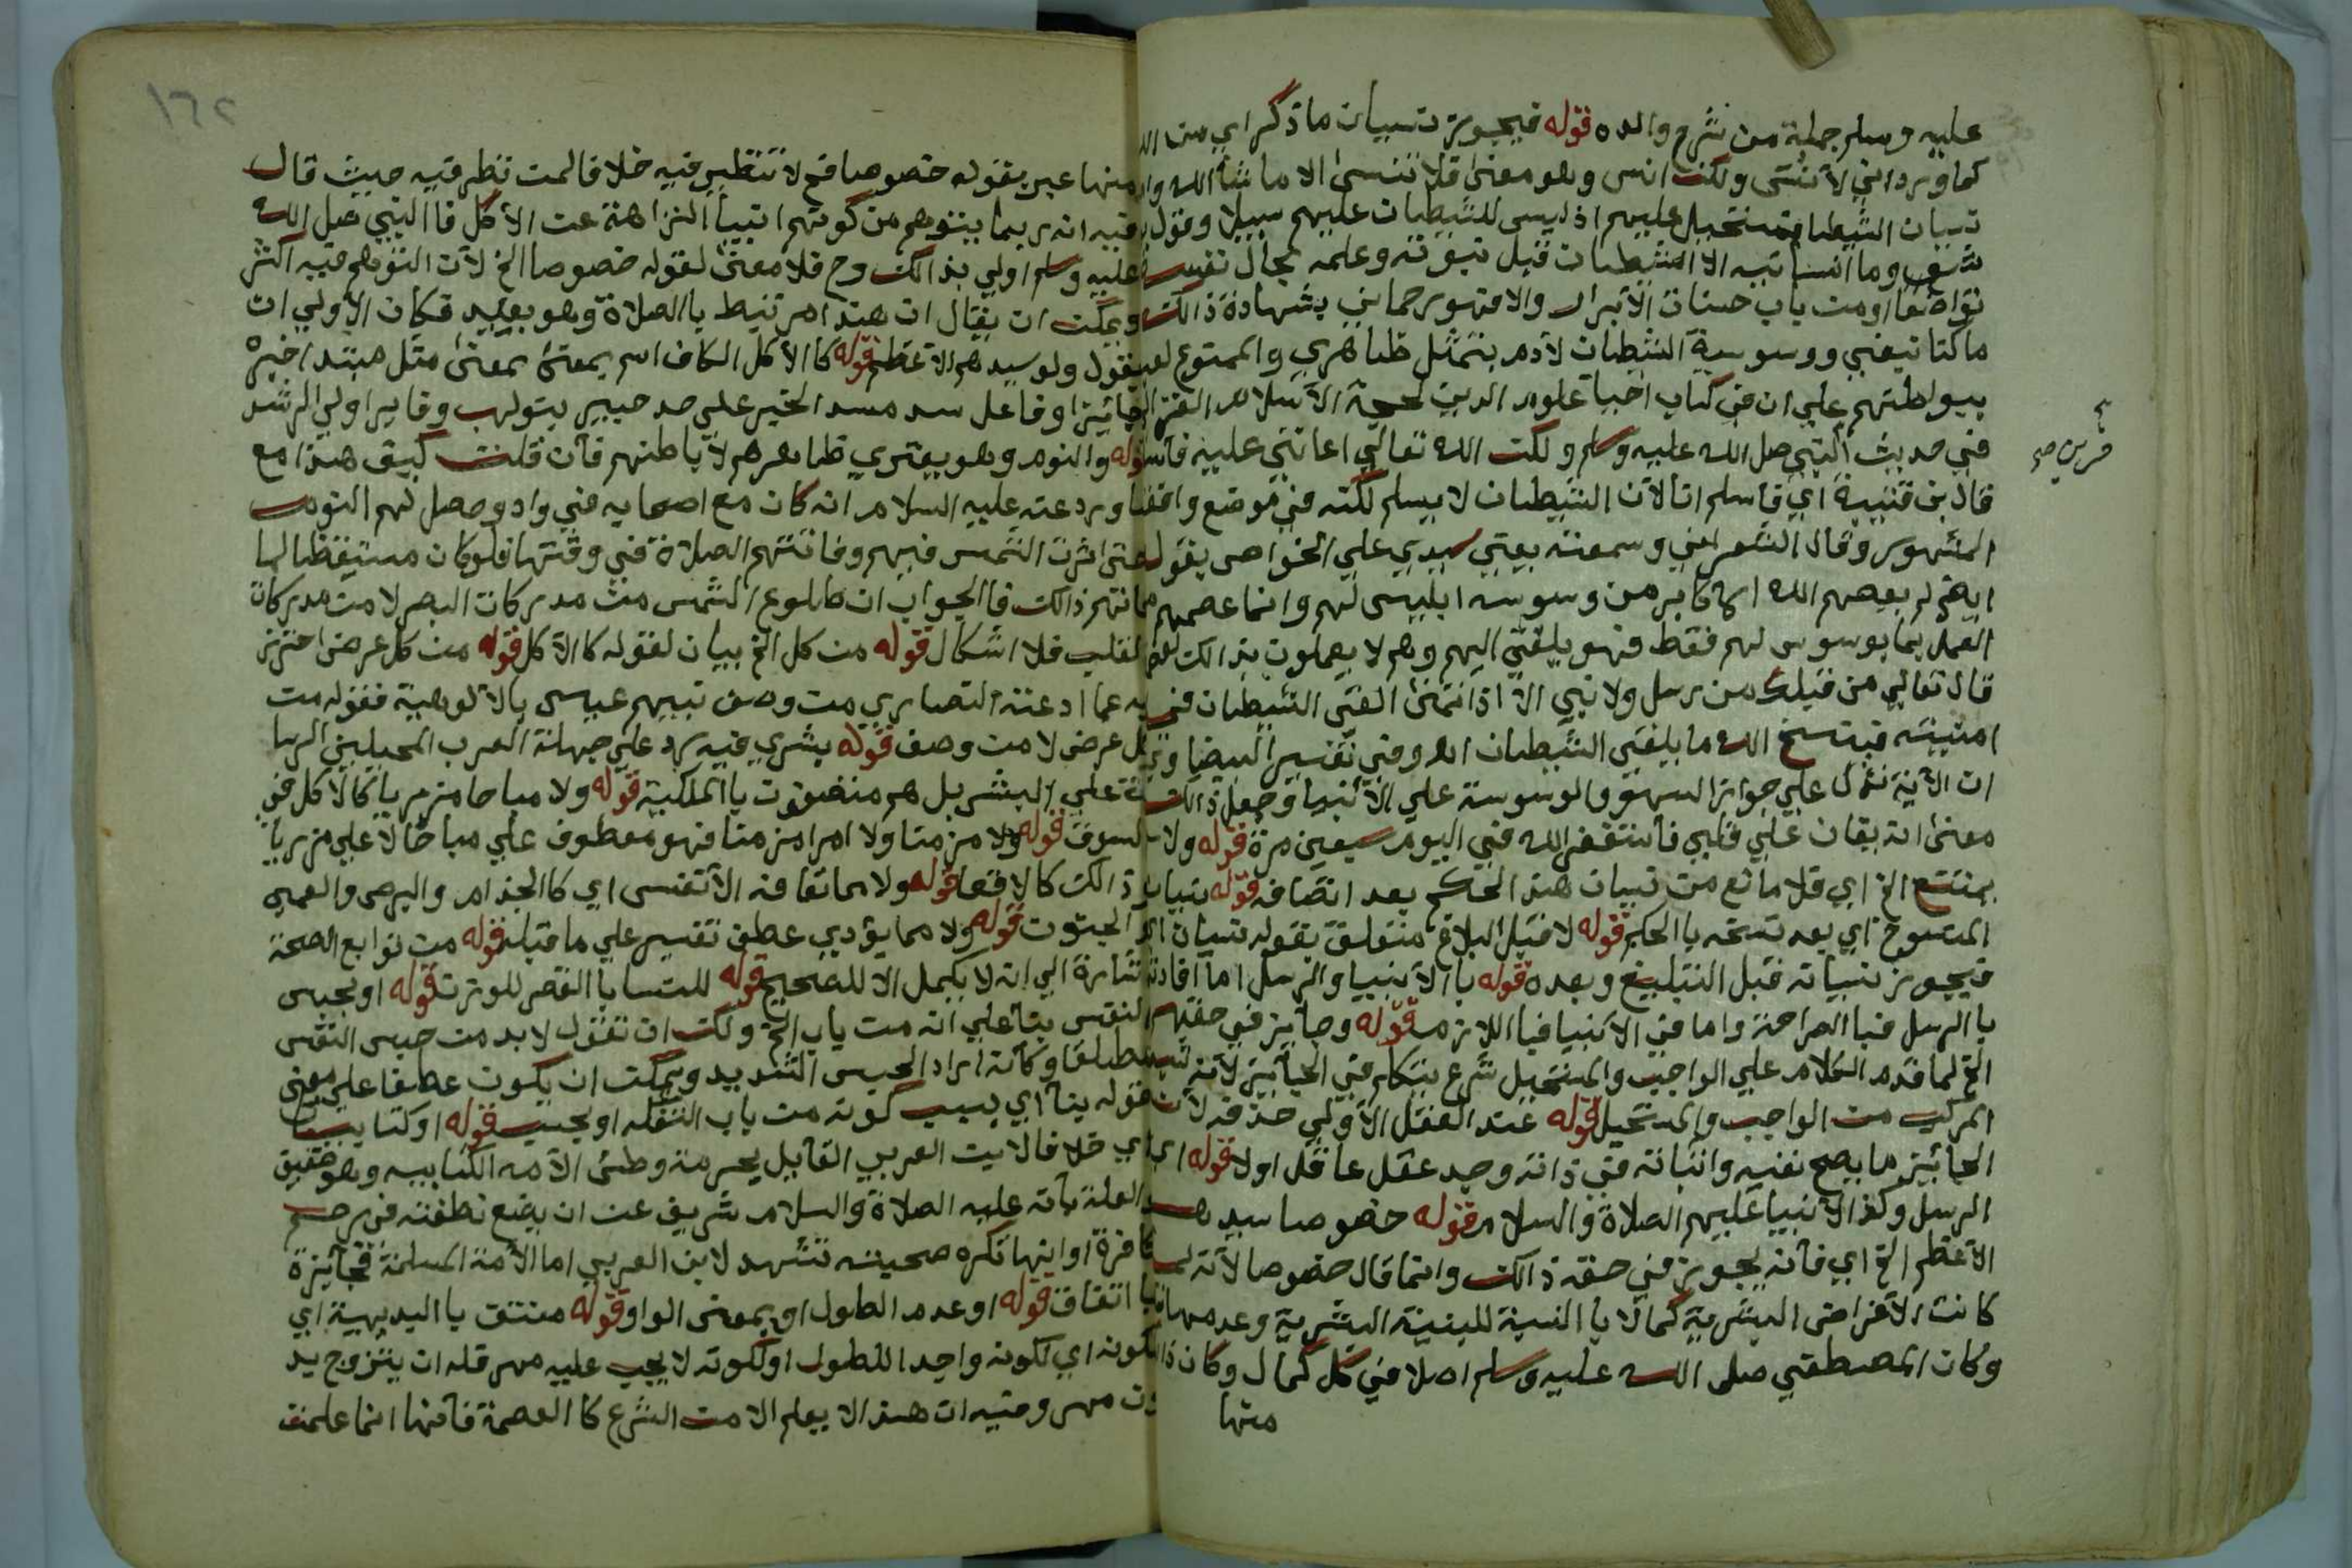 عليه وسلم جملة من شرح والده قوله فيجوز نسيان ماذكر اي من الله
كما ورد اني لا أنسى ولكن انس وهو معنى فلا تنسى الا ما شاالله
نسيان الشيطان مستحيل عليهم اذ ليس للشيطان عليهم سبيلا وقول
وما انسانيه الا الشيطان قبل نبوته وعلمه بحال نفسه
تواضعا او من باب حسنات الابرار والا فهو رحماني بشهادة ذالك
ماكنا نبغي ووسوسة الشيطان لادم بتمثل ظاهري والممنوع
ببواطنهم علي ان في كتاب احيا علوم الدين لحجة الاسلام
في حديث النبي صل الله عليه وسلم ولكن الله تعالي اعانني عليه فاسلم
قال بن قتيبة اي فاسلم انا لان الشيطان لا يسلم لكنه في موضع وافقنا
المشهور وقال الشعراني وسمعته يعني سيدي علي الخواص يقول
لم يعصم الله الاكابر من وسوسه ابليس لهم وانما عصمهم
العمل بما يوسوس لهم فقط فهو يلقي اليهم وهم لا يعملون بذالك
قال تعالي من قبلك من رسل ولا نبي الا اذا تمنى القى الشيطان في
امنيته فينسخ الله ما يلقى الشيطان اه وفي تفسير البيضاوي
ان الاية تدل علي جواز السهو والوسوسة علي الانبيا وجعل ذالك
معنى انه يغان علي قلبي فاستغفر الله في اليوم سبعين مرة قوله ولا
يمتنع الخ اي فلا مانع من نسيان هذ الحكم بعد اتصافه قوله نسيان
المنسوخ اي بعد نسخه باالحكم قوله لا قبل البلاغ متعلق بقوله نسيان
فيجوز نسيانه قبل التبليغ وبعده قوله باالانبيا والرسل اما افادته
باالرسل فباالصراحة واما في الانبيا فباللازم قوله وجايز في حقهم
الخ لما قدم الكلام علي الواجب والمستحيل شرع يتكلم في الجائز لانه
المركب من الواجب والمستحيل قوله عند العقل الاولي حذفه لان
الجائز ما يصح نفيه واثباته في ذاته وجد عقل عاقل اولا قوله
الرسل وكذ الانبيا عليهم الصلاة والسلام قوله خصوصا سيد
الاعظم الخ اي فانه يجوز في حقه ذالك وانما قال خصوصا لانه لما
كانت الاعراض البشرية كمالا باالنسبة للبنية البشرية وعدمها
وكان المصطفي صلى الله عليه وسلم اصلا في كل كمال وكان
منها
١٦٢
منها عبر بقوله خصوصا فح لا تنظير فيه خلافا لمن نظر فيه حيث قال
فيه انه ربما يتوهم من كونهم انبيأ النزاهة عن الاكل فاالنبي صل الله
عليه وسلم اولي بذالك وح فلا معنى لقوله خصوصا الخ لان التوهم فيه اكثر
ويمكن ان يقال ان هذ امر تنيط باالصلاة وهو بعيد فكان الاولي ان
يقول ولو سيدهم الاعظم قوله كاالأكل الكاف اسم بمعنى بمعنى مثل مبتدا خبره
جائز او فاعل سد مسد الخبر علي حد خبير بنو لهب وفايز اولي الرشد
قوله والنوم وهو يعتري ظاهرهم لا باطنهم فان قلت كيف هذا مع
ورد عنه عليه السلام انه كان مع اصحابه في واد وحصل لهم النوم
حتى اثرت الشمس فيهم وفاتتهم الصلاة في وقتها فلو كان مستيقظا لما
فاتتهم ذالك فاالجواب ان طلوع الشمس من مدركات البصر لا من مدركات
القلب فلا اشكال قوله من كل الخ بيان لقوله كاالاكل قوله من كل عرض احترز
به عما ادعته النصاري من وصف نبيهم عيسى باالالوهية فقوله من
كل عرض لا من وصف قوله بشري فيه رد علي جهلة العرب المحيلين الرسا
لة علي البشر بل هم متصفوت باالملكية قوله ولا مباحا مزريا كاالاكل في
السوق قوله ولا مزمنا ولا امرا مزمنا فهو معطوف علي مباحا لا علي مزريا
ذالك كالاقعا قوله ولا مما تعافه الانفسى اي كاالجذام والبرص والعمي
الجنون قوله ولا مما يؤدي عطف تفسير علي ما قبله قوله من توابع الصحة
اشارة الي انه لا يكمل الا للصحيح قوله للنسا باالقصر للوزن قوله او يحبس
النفس بنأ علي انه من باب الخ ولك ان تقول لا بد من حبس النفس
مطلقا وكانه اراد الحبس الشديد ويمكن ان يكون عطفا علي معنى
قوله بنا اي بسبب كونه من باب التفكه او يحبس قوله او كتابيه
اي خلافا لابن العربي القايل بحرمة وطئ الامه الكتابيه وهو حقيق
والعلة بأنه عليه الصلاة والسلام شريف عن ان يضع نطفته في رحم
كافرة او انها تكره صحبته تشهد لابن العربي اما الأمة المسلمة فجائزة
با اتفاق قوله او عدم الطول او بمعنى الواو قوله منتف باالبديهية اي
لكونه اي لكونه واجد اللطول او لكونه لا يجب عليه مهر فله ان يتزوج بد
ون مهر وفيه ان هذ لا يعلم الا من الشرع كا العصمة فانها انما علمت